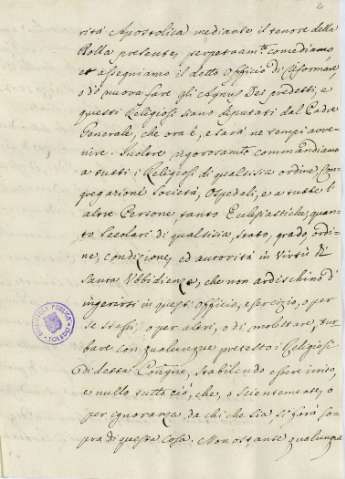 rità Apostolica mediante il tenore della
Bolla presente, perpetuam.te concediamo
et assegniamo il detto officio di riformare,
o di nuovo fare gli Agnus Dei predetti, e
questi Religiosi siano deputati dal Padre
Generale, che ora è, e sarà ne tempi avve-
nire. Inoltre rigorosamente commandiamo
a tutti i Religiosi di qualsisia ordine Con-
gregazione Società, Ospedali, e a tutte l'
altre Persone, tanto Eclesiastiche, quan-
to Secolari di qualsisia, stato, grado, ordi-
ne, condizione, ed autorità in Virtù di
Santa Ubbidienza, che non ardischino d'
ingerirsi in questo officio, esercizio, o per
se stessi, o per altri, o di molestare, tur-
bare con qualunque pretesto i Religiosi
di detta Congne, stabilendo essere irrito,
e nullo tutto ciò, che, o scientemente, o
per ignoranza da chi che sia si farà so-
pra di questa cosa. Non ostante qualunque